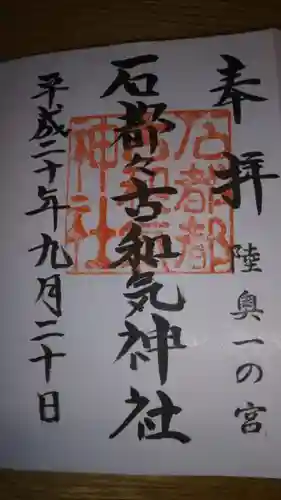 奉拝
陸奥一の宮
石都々古和気神社
石都都
古和氣
神社
平成二十年九月二十日